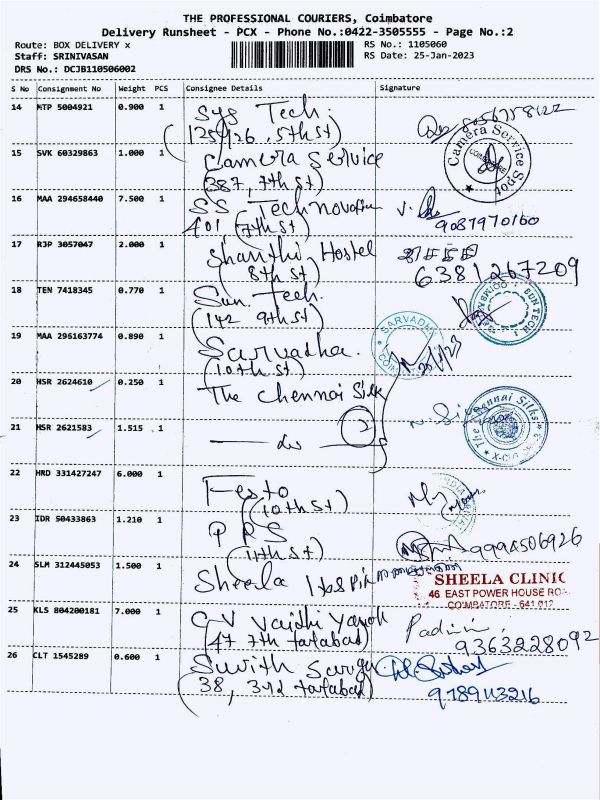 THE PROFESSIONAL COURIERS, Coimbatore
Delivery Runsheet - PCX - Phone No.:0422-3505555 - Page No.:2
Route: BOX DELIVERY x
RS No.: 1105060
Staff: SRINIVASAN
RS Date: 25-Jan-2023
DRS No.: DCJB110506002
S No Consignment No Weight PCS Consignee Details Signature
14 MTP 5004921 0.900 1 Sys Tech.
(125/126, 5th st)
15 SVK 60329863 1.000 1 Camera Service
(387, 7th st)
Camera Service Spot
COIMBATORE
16 MAA 294658440 7.500 1 SS Technovation
401, (7th st)
9087970160
17 RJP 3057047 2.000 1 Shanthi Hostel
(8th st)
6381267209
18 TEN 7418345 0.770 1 Sun Tech.
(142 9th st)
SUN TECH
19 MAA 296163774 0.890 1 Sarvadha.
(10th st)
SARVADHA
20 HSR 2624610 0.250 1 The Chennai Silk
21 HSR 2621583 1.515 1 — do — 2
The Chennai Silks
22 HRD 331427247 6.000 1 Festo
(10th st)
23 IDR 50433863 1.210 1 PRS
(11th st)
9994506926
24 SLM 312445053 1.500 1 Sheela
SHEELA CLINIC
46 EAST POWER HOUSE ROA
COIMBATORE - 641 012
25 KLS 804200181 7.000 1 C V Vaidhi
(47 7th tatabad)
Padini
9363228092
26 CLT 1545289 0.600 1
(38, 3rd tatabad)
9789113216